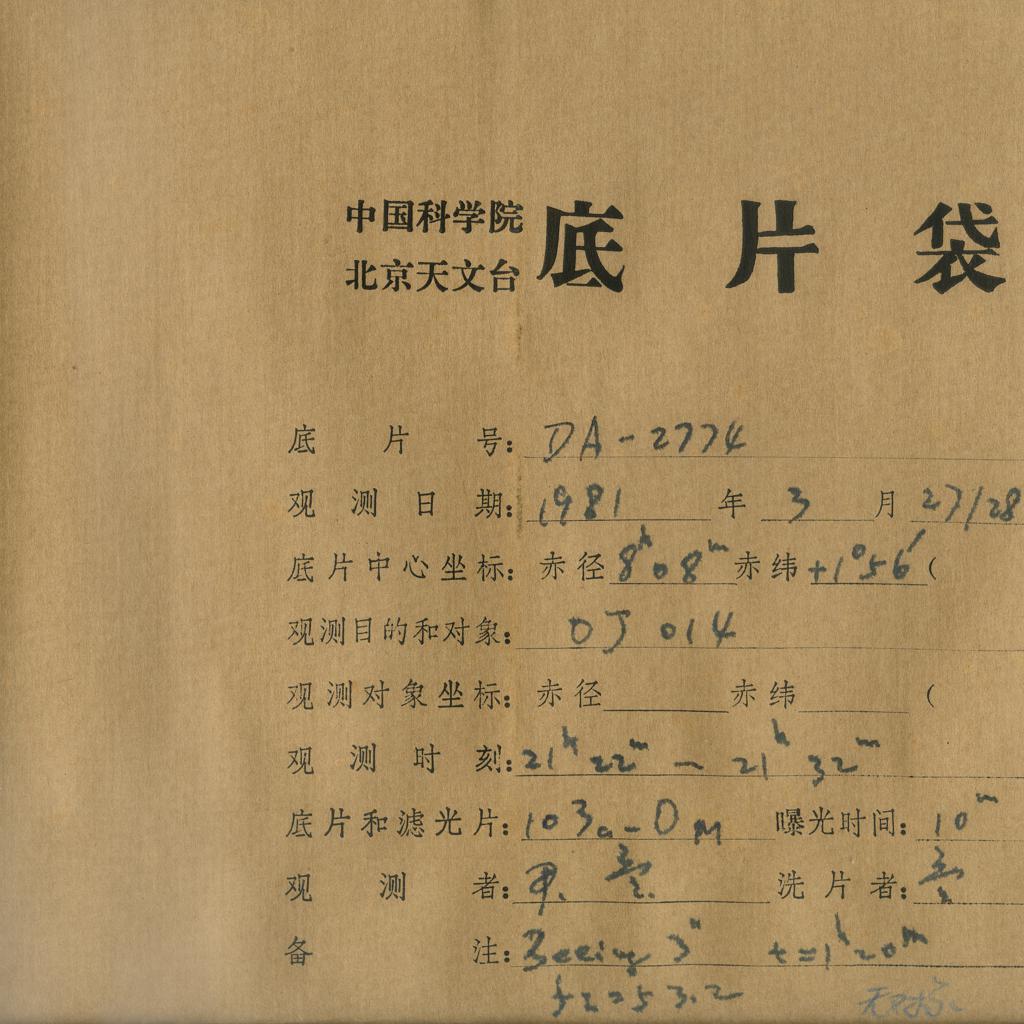 中国科学院
北京天文台 底片袋
底片号: DA-2774
观测日期: 1981年3月27/28
底片中心坐标: 赤径 8h08m 赤纬 +1°56′ (
观测目的和对象: OJ 014
观测对象坐标: 赤径 赤纬 (
观测时刻: 21h22m — 21h32m
底片和滤光片: 103a-D M 曝光时间: 10m
观测者:
洗片者:
备注: Seeing 3″ t=1h20m